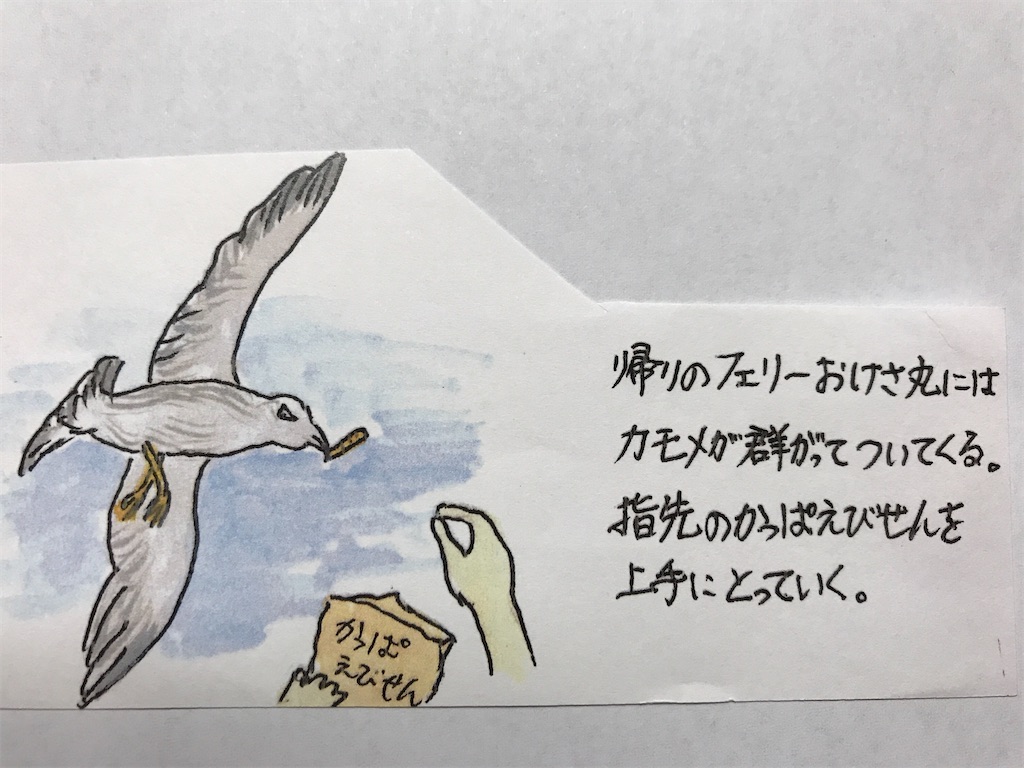 帰りのフェリーおけさ丸には
カモメが群がってついてくる。
指先のかっぱえびせんを
上手にとっていく。
かっぱ
えびせん